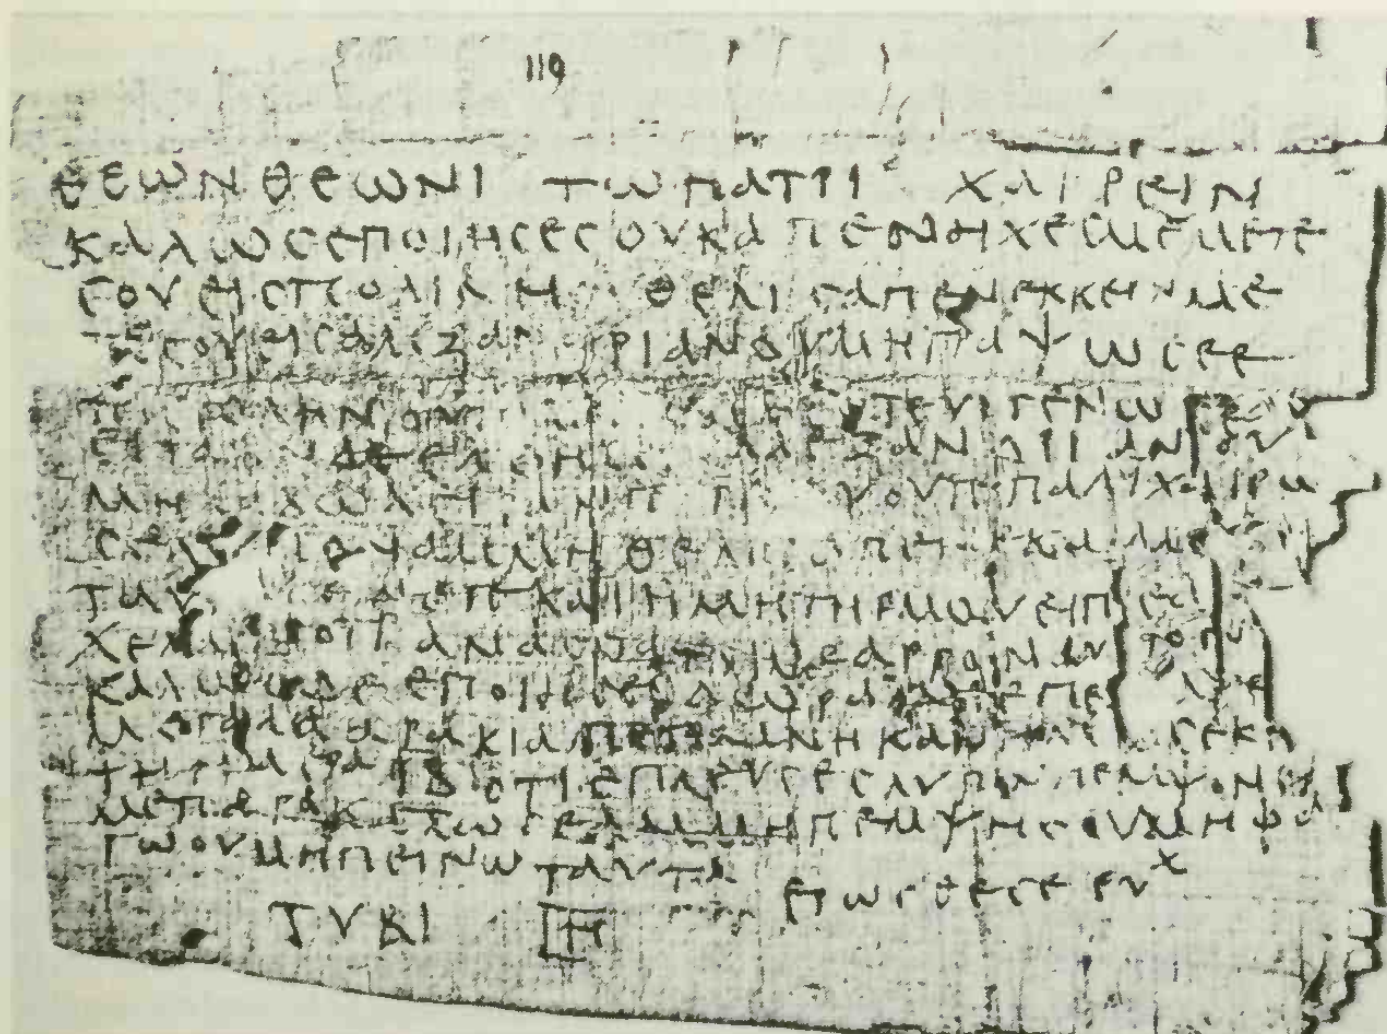 ΘΕΩΝ ΘΕΩΝΙ ΤΩ ΠΑΤΡΙ ΧΑΙΡΕΙΝ
ΚΑΛΩϹ ΕΠΟΙΗϹΕϹ ΟΥΚ ΑΠΕΝΗΧΕϹ ΜΕ ΜΕΤΕ
ϹΟΥ ΕΙϹ ΠΟΛΙΝ Η ΟΥ ΘΕΛΙϹ ΑΠΕΝΕΚΚΕΙΝ ΜΕ
ΤΕϹΟΥ ΕΙϹ ΑΛΕΞΑΝΔΡΙΑΝ ΟΥ ΜΗ ΓΡΑΨΩ ϹΕ Ε
ΠΙϹΤΟΛΗΝ ΟΥΤΕ ΛΑΛΩ ϹΕ ΟΥΤΕ ΥΙΓΕΝΩ ϹΕ
ΕΙΤΑ ΑΝ ΔΕ ΕΛΘΗϹ ΕΙϹ ΑΛΕΞΑΝΔΡΙΑΝ ΟΥ
ΜΗ ΛΑΒΩ ΧΕΙΡΑΝ ΠΑΡΑ ϹΟΥ ΟΥΤΕ ΠΑΛΙ ΧΑΙΡΩ
ϹΕ ΛΥΠΟΝ ΑΜ ΜΗ ΘΕΛΗϹ ΑΠΕΝΕΚΑΙ ΜΕ
ΤΑΥΤΑ ΓΕΙΝΕΤΕ ΚΑΙ Η ΜΗΤΗΡ ΜΟΥ ΕΙΠΕ ΑΡ
ΧΕΛΑΩ ΟΤΙ ΑΝΑϹΤΑΤΟΙ ΜΕ ΑΡΡΟΝ ΑΥΤΟΝ
ΚΑΛΩϹ ΔΕ ΕΠΟΙΗϹΕϹ ΔΩΡΑ ΜΟΙ ΕΠΕΜΨΕ
ΜΕΓΑΛΑ ΑΡΑΚΙΑ ΠΕΠΛΑΝΗΚΑΝ ΗΜΩϹ ΕΚΕ
ΤΗ ΗΜΕΡΑ ΙΒ ΟΤΙ ΕΠΛΕΥϹΕϹ ΛΥΠΟΝ ΠΕΜΨΟΝ ΕΙ
ΜΕ ΠΑΡΑΚΑΛΩ ϹΕ ΑΜ ΜΗ ΠΕΜΨΗϹ ΟΥ ΜΗ ΦΑ
ΓΩ ΟΥ ΜΗ ΠΕΙΝΩ ΤΑΥΤΑ
ΕΡΩϹΘΕ ϹΕ ΕΥΧ
ΤΥΒΙ ΙΗ
119